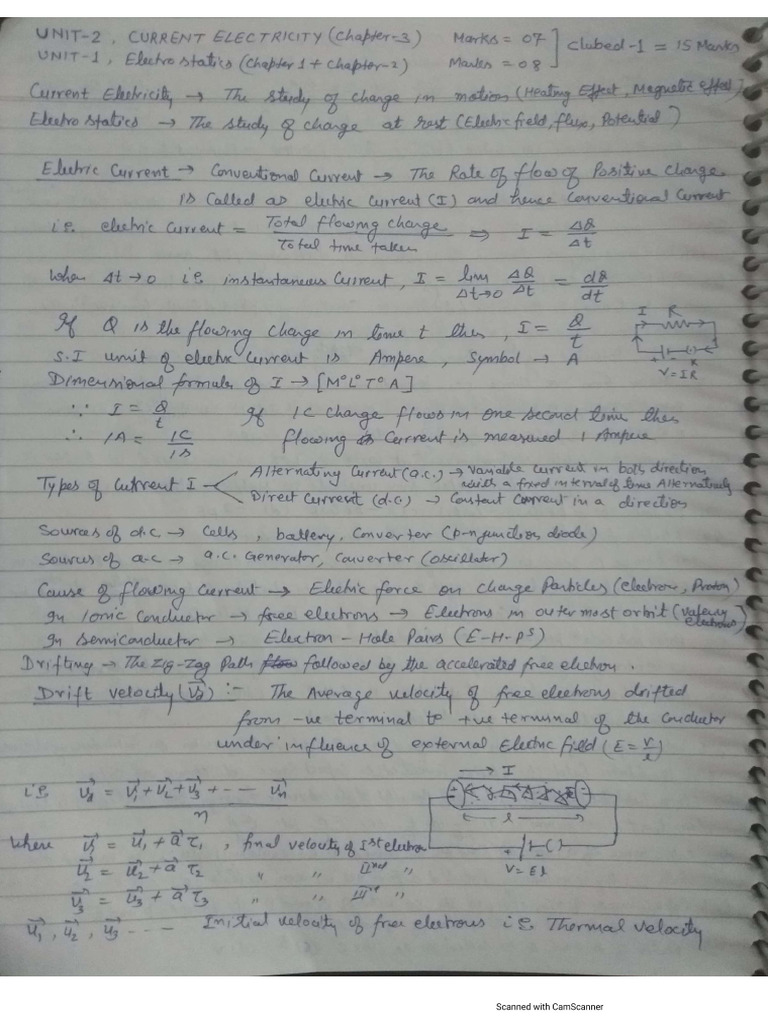 UNIT-2, CURRENT ELECTRICITY (Chapter-3) Marks = 07 ] Clubed-1 = 15 Marks
UNIT-1, Electrostatics (Chapter 1 + Chapter-2) Marks = 08
Current Electricity → The study of charge in motion (Heating Effect, Magnetic effect)
Electrostatics → The study of charge at rest (Electric field, flux, Potential)
Electric Current → Conventional Current → The Rate of flow of Positive Charge
is Called as electric current (I) and hence Conventional Current
i.e. electric current = Total flowing charge / Total time taken ⇒ I = ΔQ/Δt
When Δt→0 i.e instantaneous Current, I = lim Δt→0 ΔQ/Δt = dQ/dt
If Q is the flowing charge in time t then, I = Q/t
I R
V=IR
S.I unit of electric Current is Ampere, Symbol → A
Dimensional formula of I → [M⁰L⁰T⁰A]
∵ I = Q/t If 1C charge flows in one second time then
∴ 1A = 1C/1S flowing Current is measured 1 Ampere
Types of Current I
Alternating Current (a.c.) → Variable current in both direction with a fixed interval of time Alternatively
Direct Current (d.c.) → Constant Current in a direction
Sources of d.c → Cells, battery, Converter (p-n junction diode)
Sources of a.c → a.c. Generator, Converter (oscillator)
Cause of flowing Current → Electric force on Charge Particles (electron, Proton)
In Ionic Conductor → free electrons → Electrons in outermost orbit (Valency electrons)
In Semiconductor → Electron-Hole Pairs (E-H-Pˢ)
Drifting → The Zig-Zag Path followed by the accelerated free electron.
Drift velocity (V⃗d) :- The Average velocity of free electrons drifted
from -ve terminal to +ve terminal of the Conductor
under influence of external Electric field (E = V/l)
i.e v⃗d = v⃗1+v⃗2+v⃗3+ --- v⃗n / n
→ I
l
V = El
where v⃗1 = u⃗1 + a⃗ τ1, final velocity of Ist electron
v⃗2 = u⃗2 + a⃗ τ2 " " IInd "
v⃗3 = u⃗3 + a⃗ τ3 " " IIIrd "
u⃗1, u⃗2, u⃗3 --- Initial velocity of free electrons i.e. Thermal velocity
Scanned with CamScanner